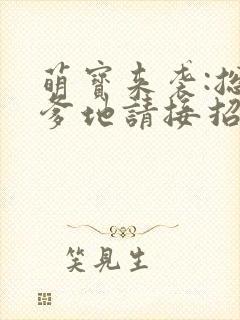 萌寶来袭:總
爹地請接招
笑見生